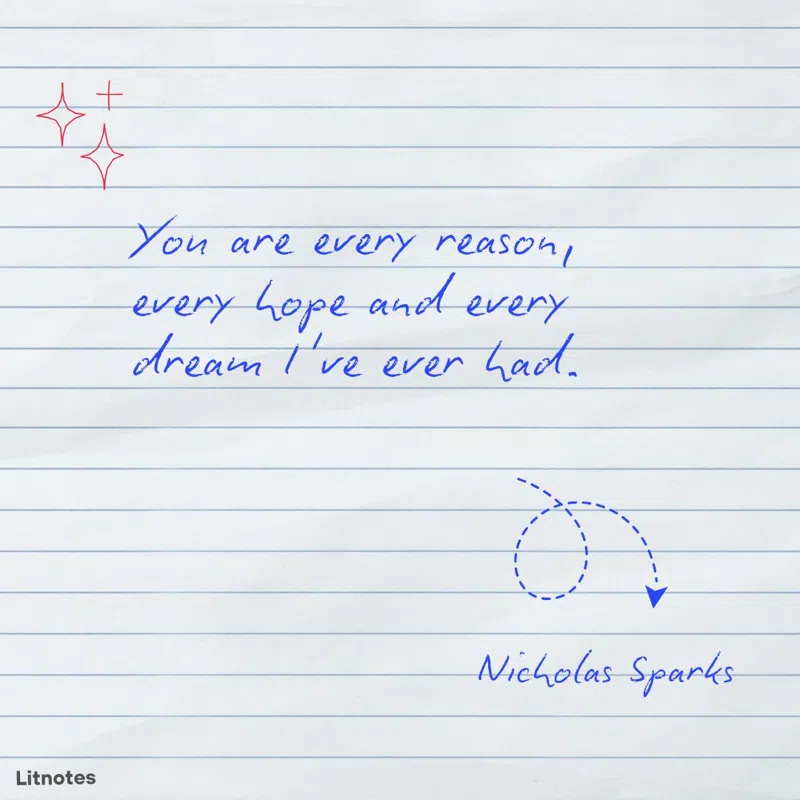 You are every reason,
every hope and every
dream I've ever had.
Nicholas Sparks
Litnotes